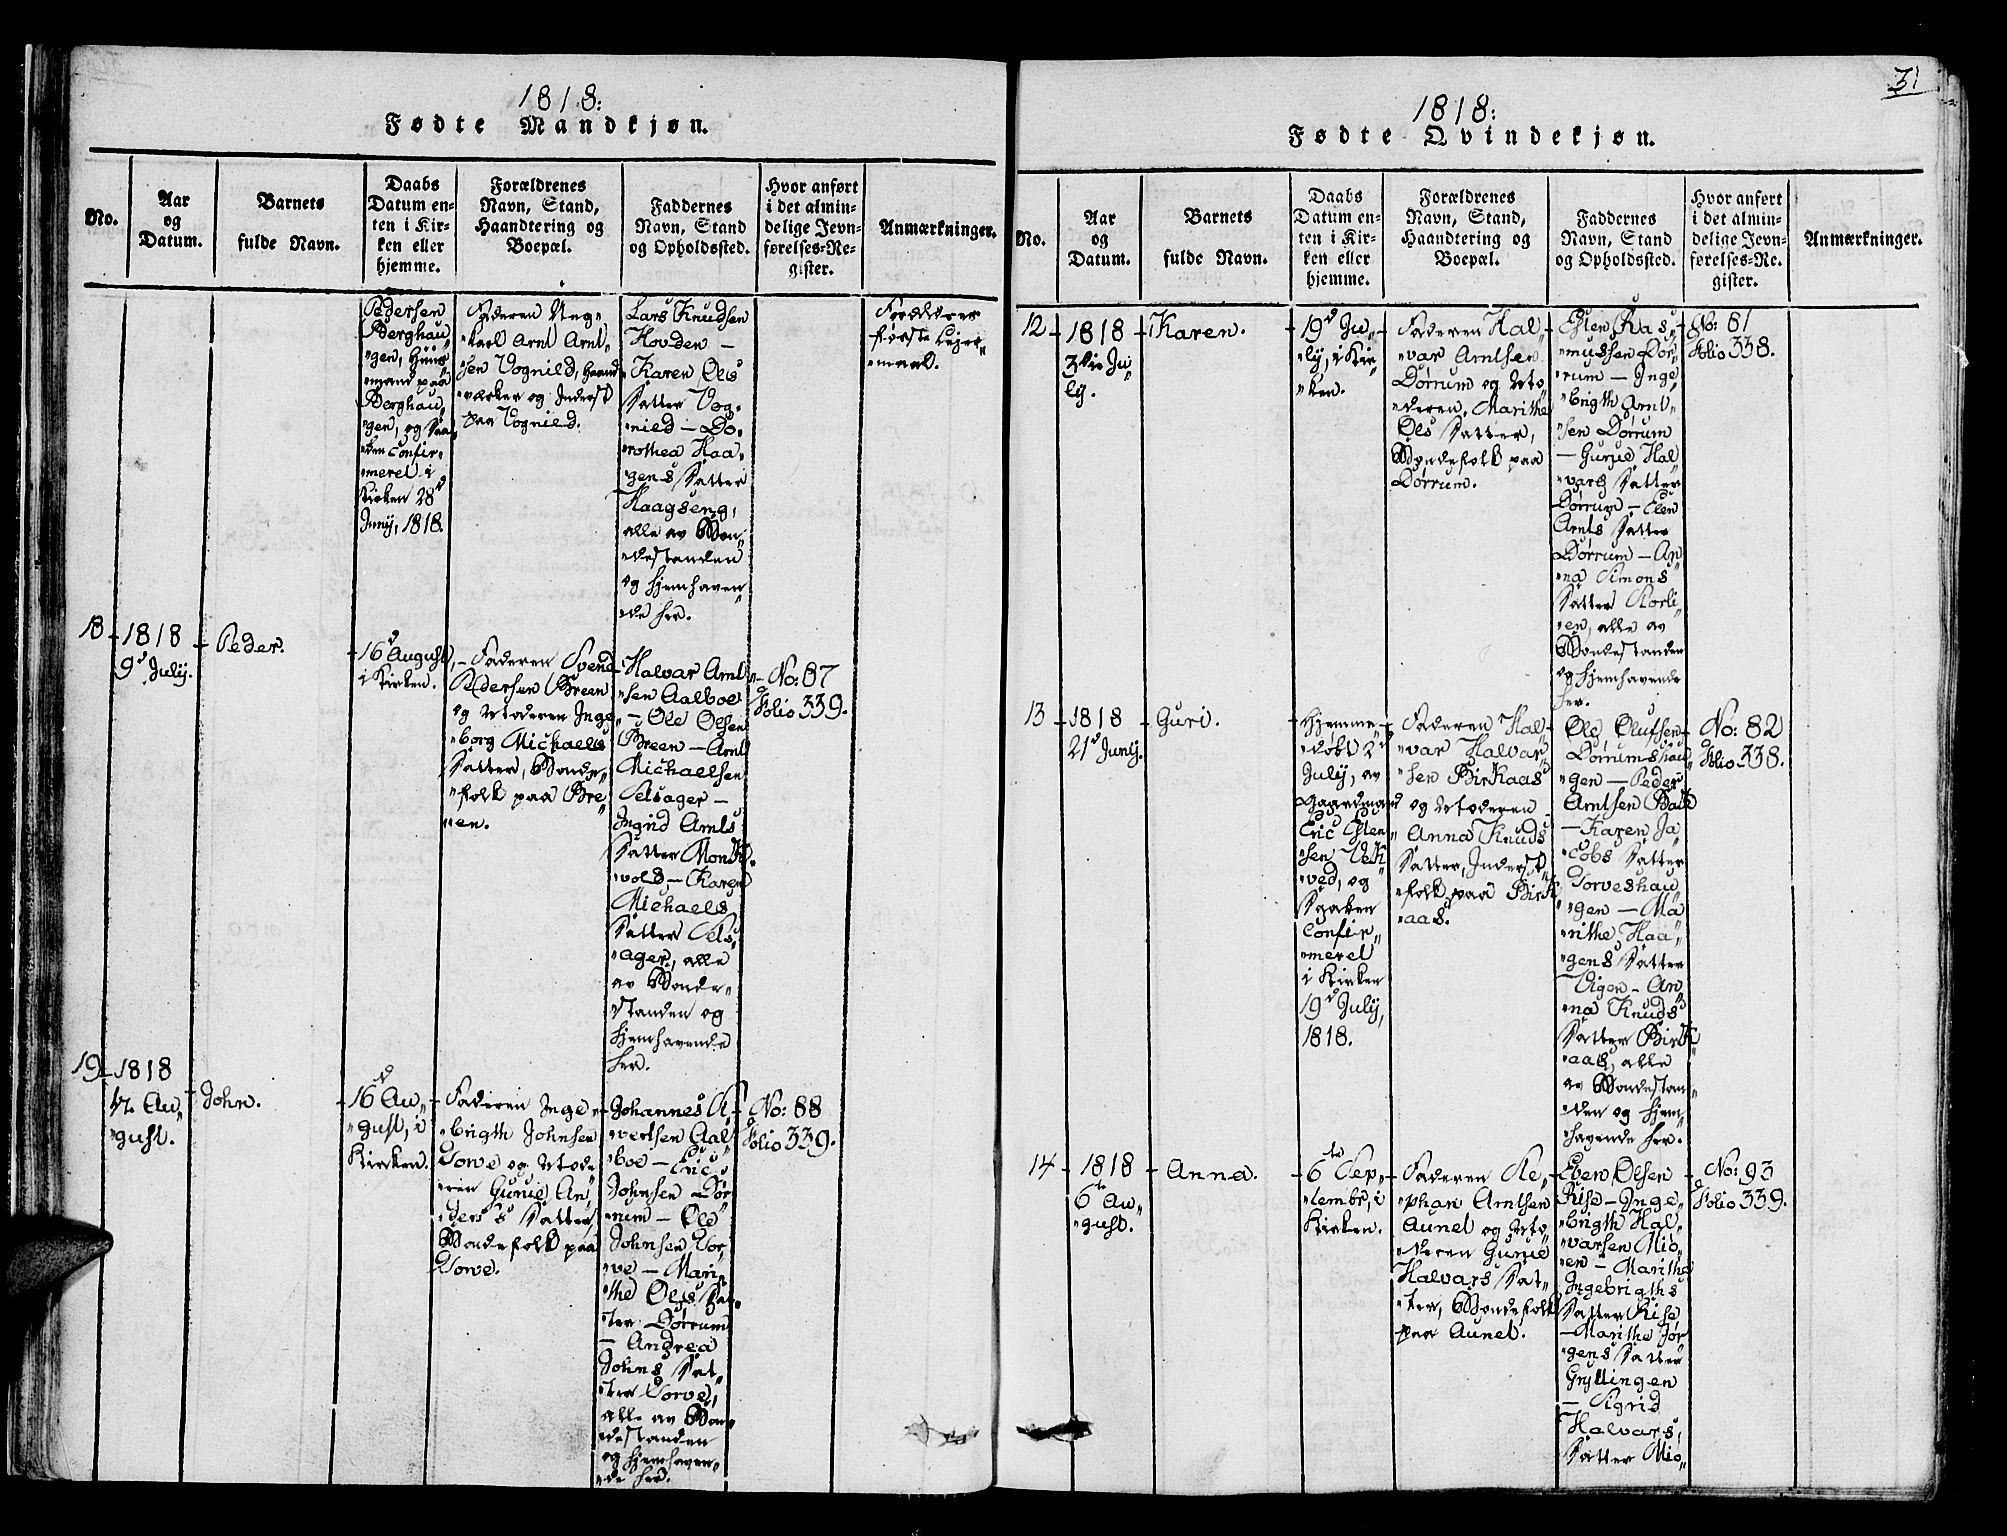 1818:
Fødte Mandkjøn.
No.
Aar
og
Datum.
Barnets
fulde Navn.
Daabs
Datum en-
ten i Kir-
ken eller
hjemme.
Forældrenes
Navn, Stand,
Haandtering og
Boepæl.
Faddernes
Navn, Stand
og Opholdssted.
Hvor anført
i det almin-
delige Jevn-
førelses-Re-
gister.
Anmærkninger.
Pedersen
Berghau„
„gen, Huus„
„mand paa
Berghau„
„gen, og Saa„
„den Confir„
„meret i
Kirken 28d
Junij, 1818.
Faderen Ung„
„karl Arnt Arnt„
„sen Vognild, Haand„
„værker og Inderst
paa Vognild.
Lars Knudsen
Hovden –
Karen Ols
Datter Vog„
„nild – Do„
„rothea Haa„
„gens Datter
Haagseng,
alle av Bon„
„destanden
og hjemhaven„
„de her.
Forældrenes
første Leier„
„maal.
18 – 1818 –
9d Julij.
Peder.
– 16d August,
i Kirken.
– Faderen Svend
Pedersen Breen
og Moderen Inge„
„borg Michaels
Datter, Bonde„
„folk paa Bre„
„en.
Halvar Arnt
„sen Aalboe
– Ole Olsen
Breen – Arnt
Michaelsen
Selsager –
Ingrid Arnts
Datter Monk„
„vold – Karen
Michaels
Datter Sels„
„ager, alle
av Bonde„
standen og
hjemhavende
her.
– No: 87
Folio 339.
19 – 1818
12. Au„
„gust.
John.
– 16d Au„
„gust, i
Kirken.
– Faderen Inge„
„brigth Johnsen
Torve og Mode„
„ren Gunie An„
„ders Datter,
Bondefolk paa
Torve.
Johannes A„
„vertsen Aal„
„boe – Eric
Johnsen Dør„
„rum – Ole
Johnsen Tor„
„ve – Mari„
„the Ols Dat„
„ter Dørrum
– Andrea
Johns Dat„
„ter Torve,
alle av Bon„
„destanden
og hjemhaven„
„de her.
– No: 88
Folio 339.
31
1818:
Fødte Qvindekjøn.
No.
Aar
og
Datum.
Barnets
fulde Navn.
Daabs
Datum en-
ten i Kir-
ken eller
hjemme.
Forældrenes
Navn, Stand,
Haandtering og
Boepæl.
Faddernes
Navn, Stand
og Opholdssted.
Hvor anført
i det almin-
delige Jevn-
førelses-Re-
gister.
Anmærkninger.
12 – 1818 –
3die Ju„
„lij.
Karen.
– 19d Ju„
„lij, i Kir„
„ken.
– Faderen Hal„
„var Arntsen
Dørrum og Mo„
„deren, Marithe
Ols Datter,
Bondefolk paa
Dørrum.
Esten Ras„
„mussen Dør„
„rum – Inge„
„brigth Arnt„
„sen Dørrum
– Gunie Hal„
„vars Datter
Dørrum – Elen
Arnts Datter
Dørrum – An„
„na Simons
Datter Korli„
„en, alle av
Bondestanden
og hjemhavende
her.
No: 81
Folio 338.
13 – 1818
21d Junij.
– Guri.
Hjemme„
„døbt 2d
Julij, av
Gaardmand
Eric Esten„
„sen Vek„
„ved, og
Saaken
Confir„
„meret
i Kirken
19d Julij,
1818.
Faderen Hal„
„var Halvar„
„sen Birkaas
og Moderen
Anna Knuds
Datter, Inderst„
„folk paa Birk„
„aas.
Ole Olufsen
Dørrumshau„
„gen – Peder
Arntsen Bakk
– Karen Ja„
„cobs Datter
Torveshau„
„gen – Ma„
„rithe Haa„
„gens Datter
Vigen – An„
„na Knuds
Datter Birk„
„aas, alle
av Bondestan„
„den og hjem„
„havende her.
– No: 82
Folio 338.
14 – 1818
6te Au„
„gust.
– Anna.
– 6te Sep„
„tembr, i
Kirken.
– Faderen Ste„
„phan Arntsen
Aunet og Mo„
„deren Gunie
Halvars Dat„
„ter, Bondefolk
paa Aunet.
– Even Olsen
Rise – Inge„
„brigth Hal„
„varsen Mio„
„en – Marithe
Ingebrigths
Datter Rise
– Marithe Jør„
„gens Datter
Gryllingen
– Sigrid
Halvars
Datter Mio„
– No: 93
Folio 339.